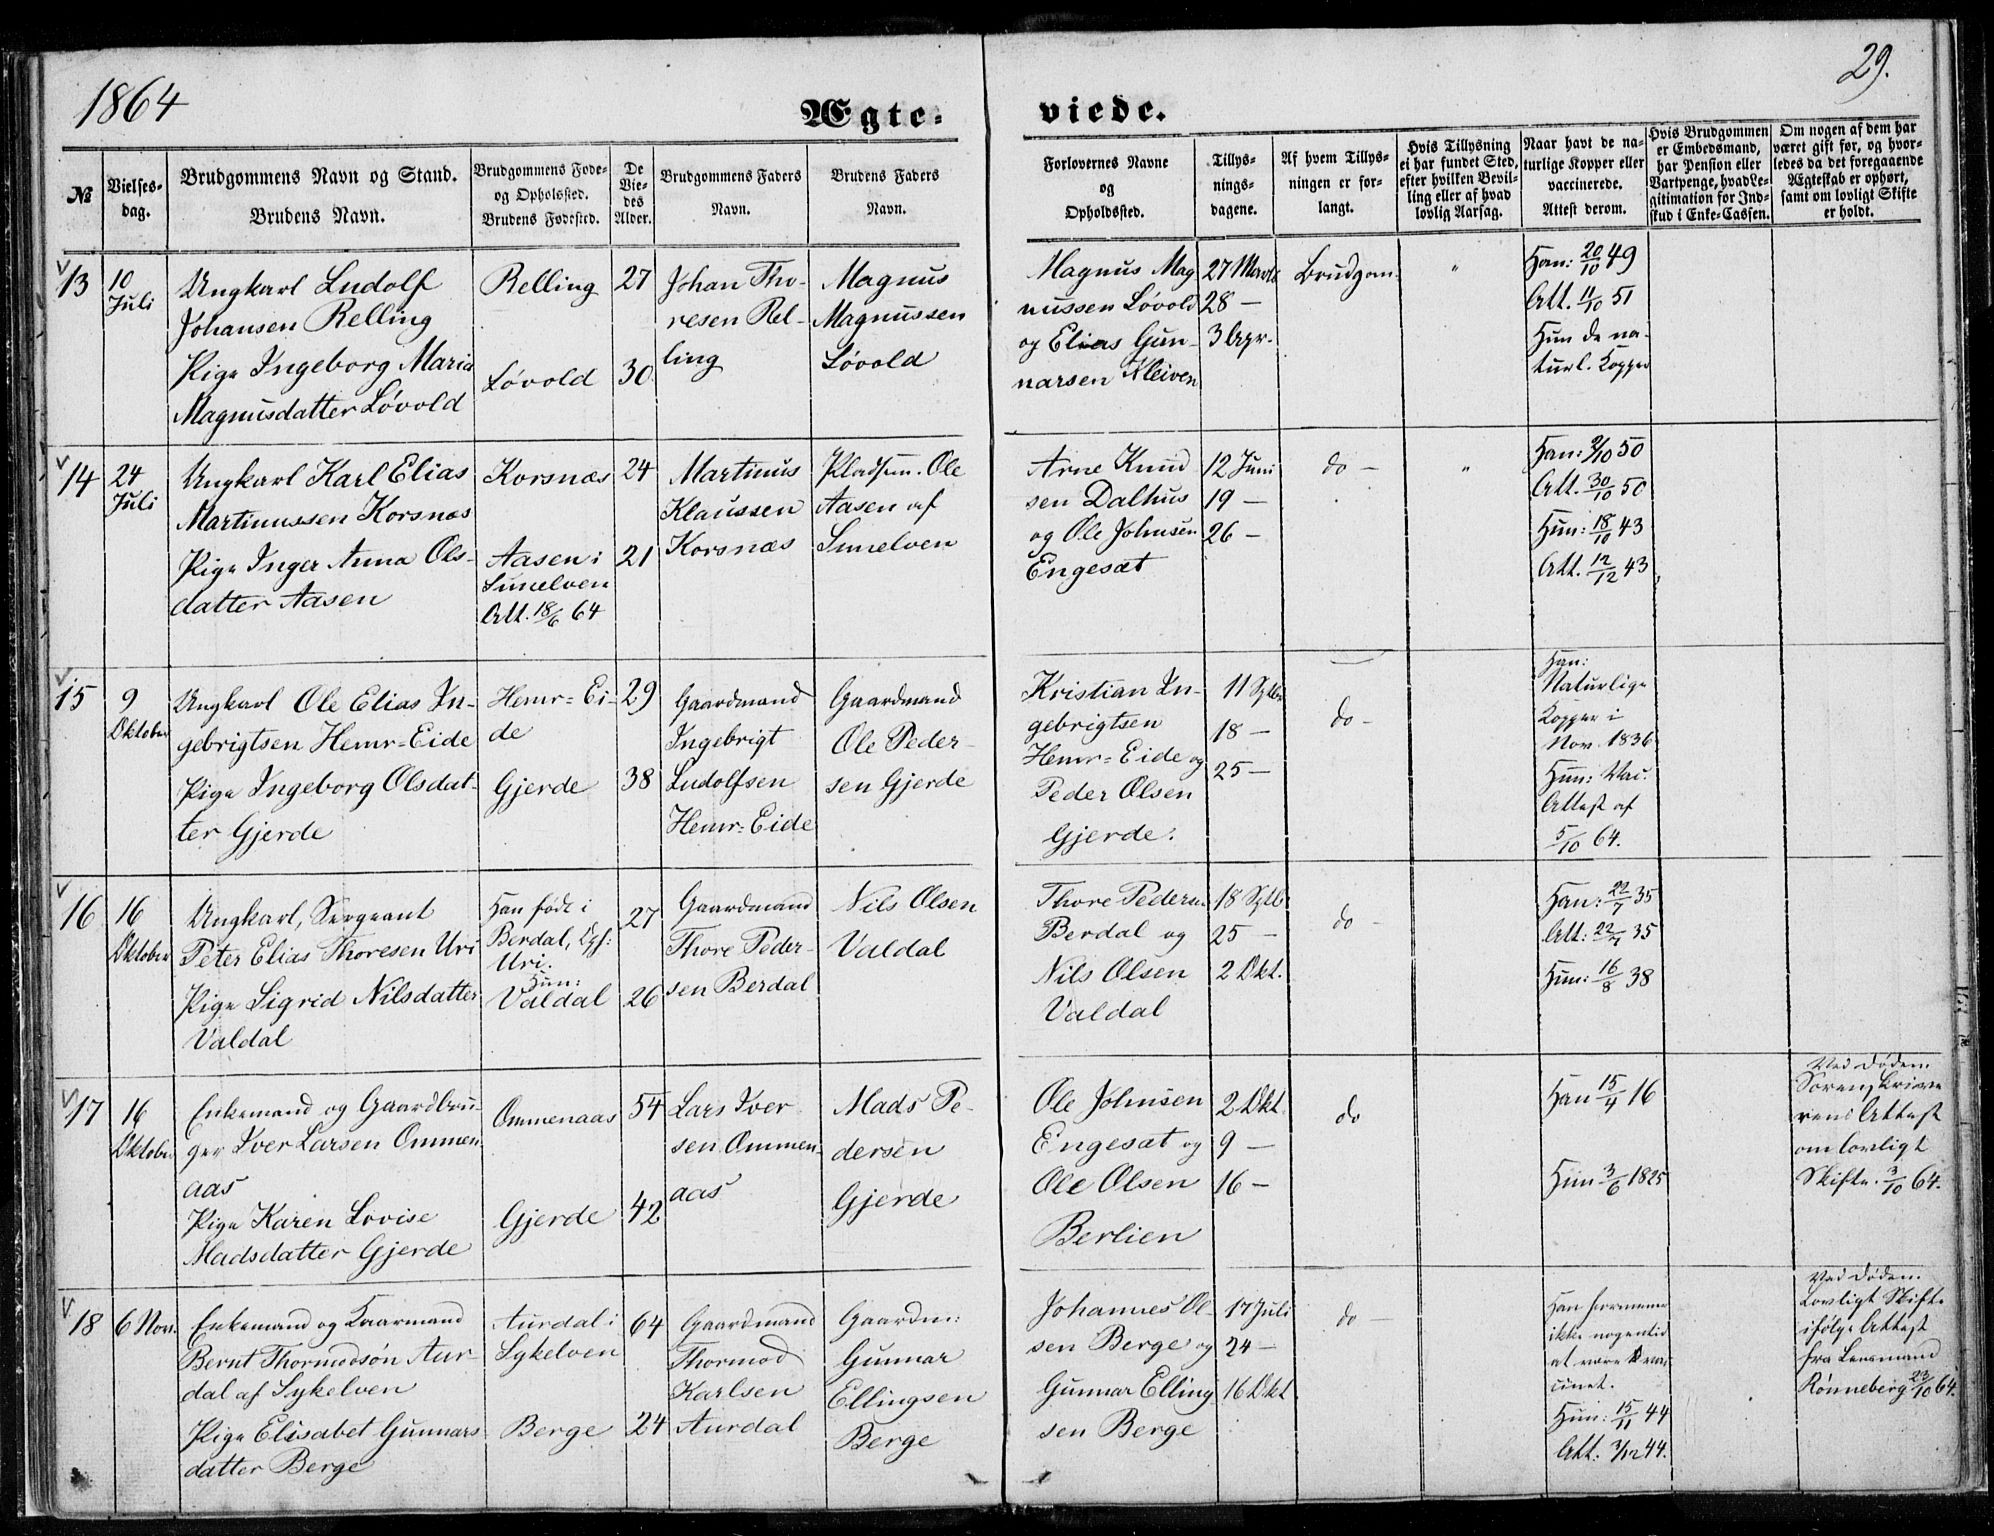 1864
29.
Ægte-
viede.
№
Vielses-
dag.
Brudgommens Navn og Stand.
Brudens Navn.
Brudgommens Føde-
og Opholssted.
Brudens Fødested.
De
Vie-
des
Alder.
Brudgommens Faders
Navn.
Brudens Faders
Navn.
Forlovernes Navne
og
Opholdssted.
Tillys-
nings-
dagene.
Af hvem Tillys-
ningen er for-
langt.
Hvis Tillysning
ei har fundet Sted,
efter hvilken Bevil-
ling eller af hvad
lovlig Aarsag.
Naar havt de na-
turlige Kopper eller
vaccinerede.
Attest derom.
Hvis Brudgommen
er Embedsmand,
har Pension eller
Vartpenge, hvad Le-
gitimation for Ind-
skud i Enke-Cassen.
Om nogen af dem har
været gift før, og hvor-
ledes da det foregaaende
Ægteskab er ophørt,
samt om lovligt Skifte
er holdt.
13
10
Juli
Ungkarl Ludolf
Johansen Relling
Pige Ingeborg Maria
Magnusdatter Løvold
Relling
Løvold
27
30
Johan Tho-
resen Rel-
ling
Magnus
Magnussen
Løvold
Magnus Mag
nussen Løvold
og Elias Gun-
narsen Kleiven
27 Marts
28 —
3 Apr.
Brudgom.
"
Han: 20/10 49
Att. 11/10 51
Hun de na-
turl. Kopper
14
24
Juli
Ungkarl Karl Elias
Martinussen Korsnæs
Pige Inger Anna Ols-
datter Aasen
Korsnæs
Aasen i
Sunelven
Att. 18/6 64
24
21
Martinus
Klaussen
Korsnæs
Pladsm. Ole
Aasen af
Sunelven
Arne Knud
sen Dalhus
og Ole Johnsen
Engesæt
12 Juni
19 —
26 —
do —
"
Han: 2/10 50
Att. 30/10 50
Hun: 18/10 43
Att. 12/12 43
15
9
Oktober
Ungkarl Ole Elias In-
gebrigtsen Hemr=Eide
Pige Ingeborg Olsdat-
ter Gjerde
Hemr=Ei-
de
Gjerde
29
38
Gaardmand
Ingebrigt
Ludolfsen
Hemr=Eide
Gaardmand
Ole Peder-
sen Gjerde
Kristian In-
gebrigtsen
Hemr=Eide og
Peder Olsen
Gjerde.
11 Sptbr
18 —
25 —
do —
Han:
Naturlige
Kopper i
Nov. 1836
Hun: Vac.
Attest af
5/10 64.
16
16
Oktober
Ungkarl, Sergeant
Peter Elias Thoresen Uri
Pige Sigrid Nilsdatter
Valdal
Han født i
Berdal, Opf:
Uri.
Hun:
Valdal
27
26
Gaardmand
Thore Peder-
sen Berdal
Nils Olsen
Valdal
Thore Pedersen
Berdal og
Nils Olsen
Valdal
18 Sptb
25 —
2 Okt.
do —
Han: 22/7 35
Att: 22/7 35
Hun: 16/8 38
17
16
Oktober
Enkemand og Gaardbru-
ger Iver Larsen Ommen
aas
Pige Karen Lovise
Madsdatter Gjerde
Ommenaas
Gjerde
54
42
Lars Iver
sen Ommen
aas
Mads Pe-
dersen
Gjerde
Ole Johnsen
Engesæt og
Ole Olsen
Berlien
2 Okt.
9 —
16 —
do
Han 15/4 16
Hun 3/6 1825
Ved Døden
Sorenskrive
rens Attest
om lovligt
Skifte. 3/10 64.
18
6 Nov.
Enkemand og Kaarmand
Bernt Thormodsøn Aur-
dal af Sykelven
Pige Elisabet Gunnars
datter Berge
Aurdal i
Sykelven
Berge
64
24
Gaardmand
Thormod
Karlsen
Aurdal
Gaardm:
Gunnar
Ellingsen
Berge
Johannes Ol-
sen Berge og
Gunnar Elling
sen Berge
17 Juli
24 —
16 Okt.
do —
Han
ikke nogentid
at være vac-
cinet.
Hun: 15/11 44
Att. 3/12 44.
Ved Døden.
Lovligt Skifte
ifølge Attest
fra Lensmand
Rønneberg 23/10 64.